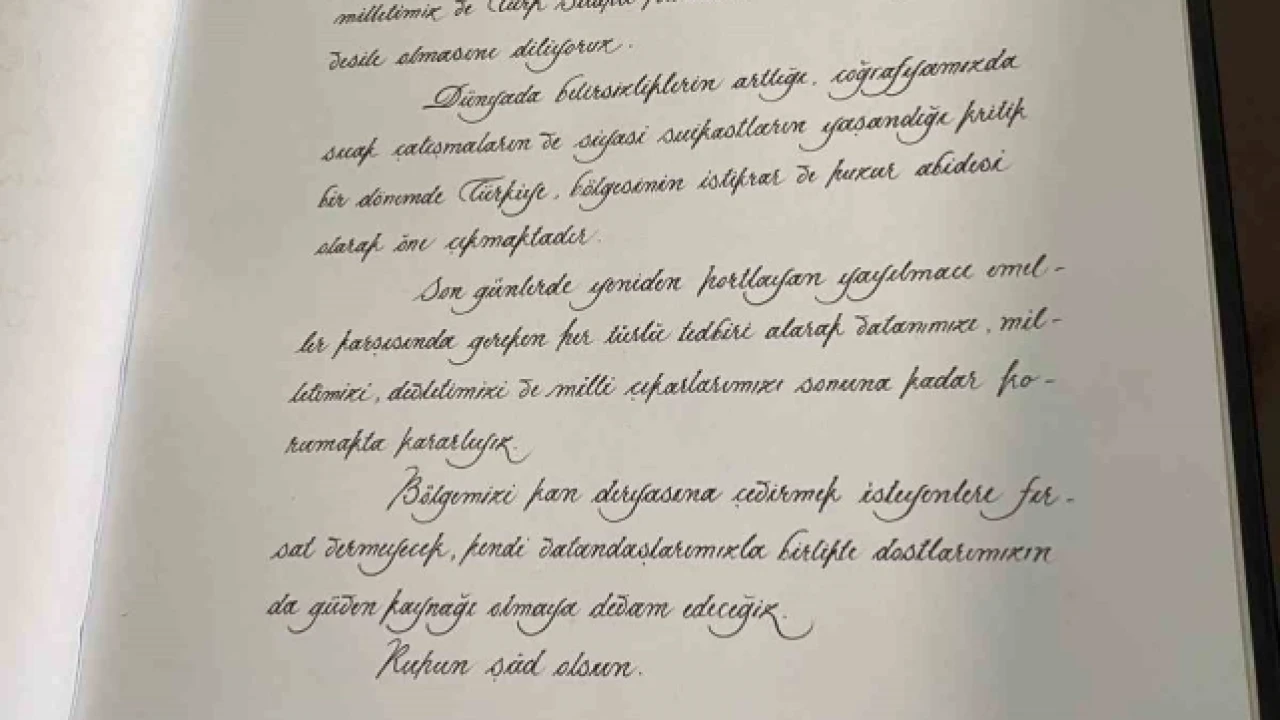 milletimiz ve Türk
vesile olmasını diliyoruz.
Dünyada belirsizliklerin arttığı, coğrafyamızda
sıcak çatışmaların ve siyasi suikastların yaşandığı kritik
bir dönemde Türkiye, bölgesinin istikrar ve huzur abidesi
olarak öne çıkmaktadır.
Son günlerde yeniden hortlayan yayılmacı emel-
ler karşısında gereken her türlü tedbiri alarak vatanımızı, mil-
letimizi, devletimizi ve milli çıkarlarımızı sonuna kadar ko-
rumakta kararlıyız.
Bölgemizi kan deryasına çevirmek isteyenlere fır-
sat vermeyecek, kendi vatandaşlarımızla birlikte dostlarımızın
da güven kaynağı olmaya devam edeceğiz.
Ruhun şâd olsun.